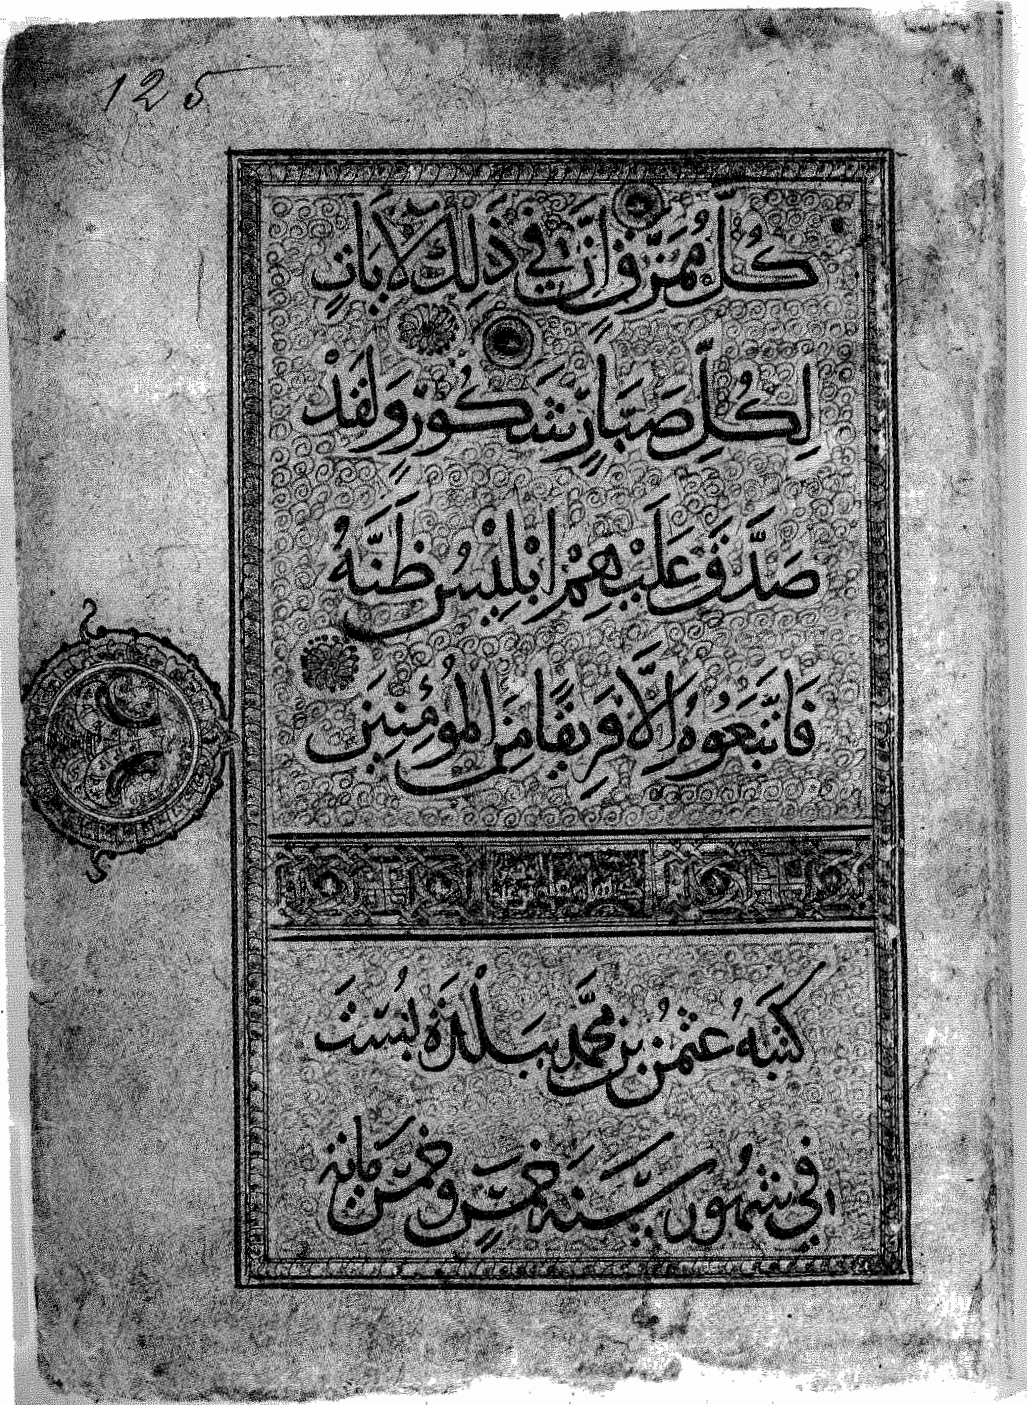 125
كُلَّ مُمَزَّقٍ اِنَّ فِي ذَلِكَ لَآيَاتٍ
لِكُلِّ صَبَّارٍ شَكُورٍ وَلَقَدْ
صَدَّقَ عَلَيْهِمْ اِبْلِيْسُ ظَنَّهُ
فَاتَّبَعُوهُ اِلَّا فَرِيقًا مِنَ الْمُؤْمِنِينَ
كتَبَهُ عثمنُ بن محمَّد ببَلْدَة بُسْت
في شهُور سَنَة خمسٍ وخمس مائة